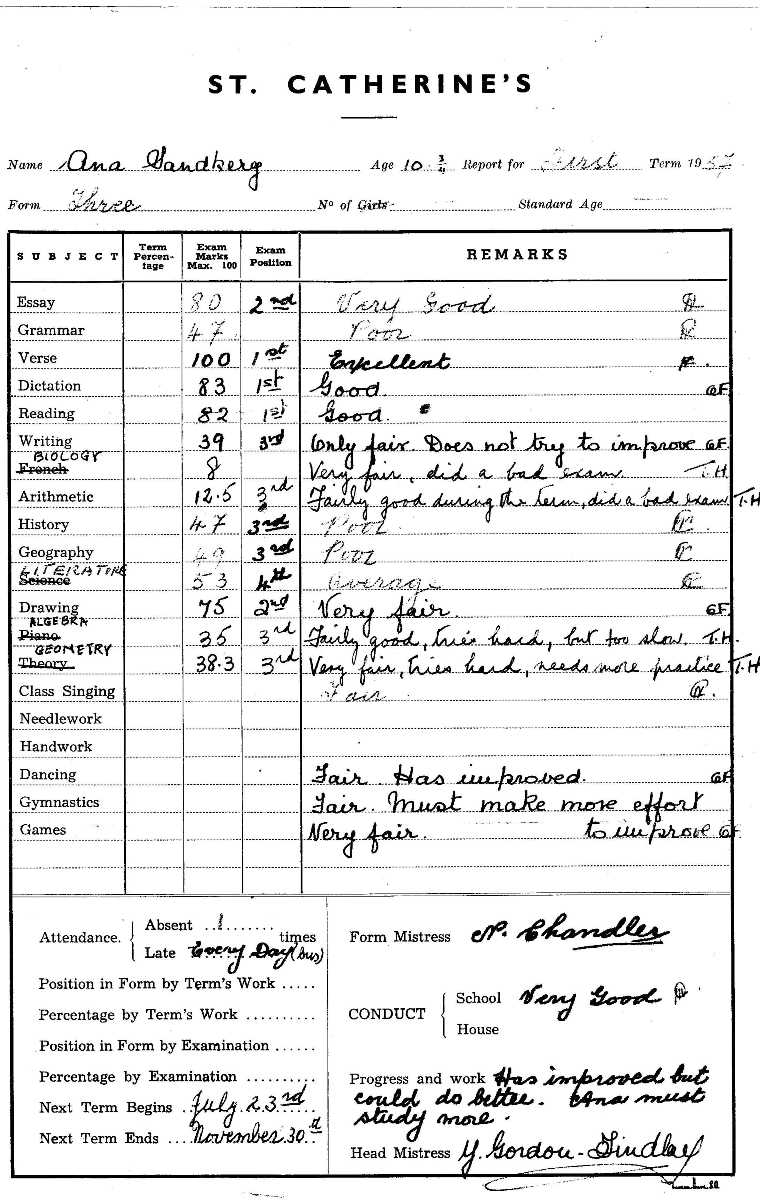 ST. CATHERINE'S
Name Ana Sandberg Age 10 3/4 Report for First Term 1957
Form Three No of Girls Standard Age
SUBJECT Term Percentage Exam Marks Max. 100 Exam Position REMARKS
Essay 80 2nd Very Good
Grammar 47 Poor
Verse 100 1st Excellent
Dictation 83 1st Good G.F.
Reading 82 1st Good.
Writing 39 3rd Only fair. Does not try to improve G.F.
BIOLOGY
French 8 Very fair, did a bad exam. T.H.
Arithmetic 12.5 3rd Fairly good during the term, did a bad exam T.H
History 47 3rd Poor
Geography 49 3rd Poor
LITERATURE
Science 53 4th average
Drawing 75 2nd Very fair. G.F.
ALGEBRA
Piano 35 3rd Fairly good, tries hard, but too slow. T.H.
GEOMETRY
Theory 38.3 3rd Very fair, tries hard, needs more practice T.H
Class Singing Fair
Needlework
Handwork
Dancing Fair. Has improved. G.F.
Gymnastics Fair. Must make more effort
Games Very fair. to improve G.F.
Attendance. Absent 1 times
Late Every Day (bus)
Position in Form by Term's Work .....
Percentage by Term's Work ..........
Position in Form by Examination ......
Percentage by Examination ..........
Next Term Begins July 23rd
Next Term Ends November 30th
Form Mistress N. Chandler
CONDUCT School Very Good
House
Progress and work Has improved but
could do better. Ana must
study more.
Head Mistress Y. Gordon-Findlay